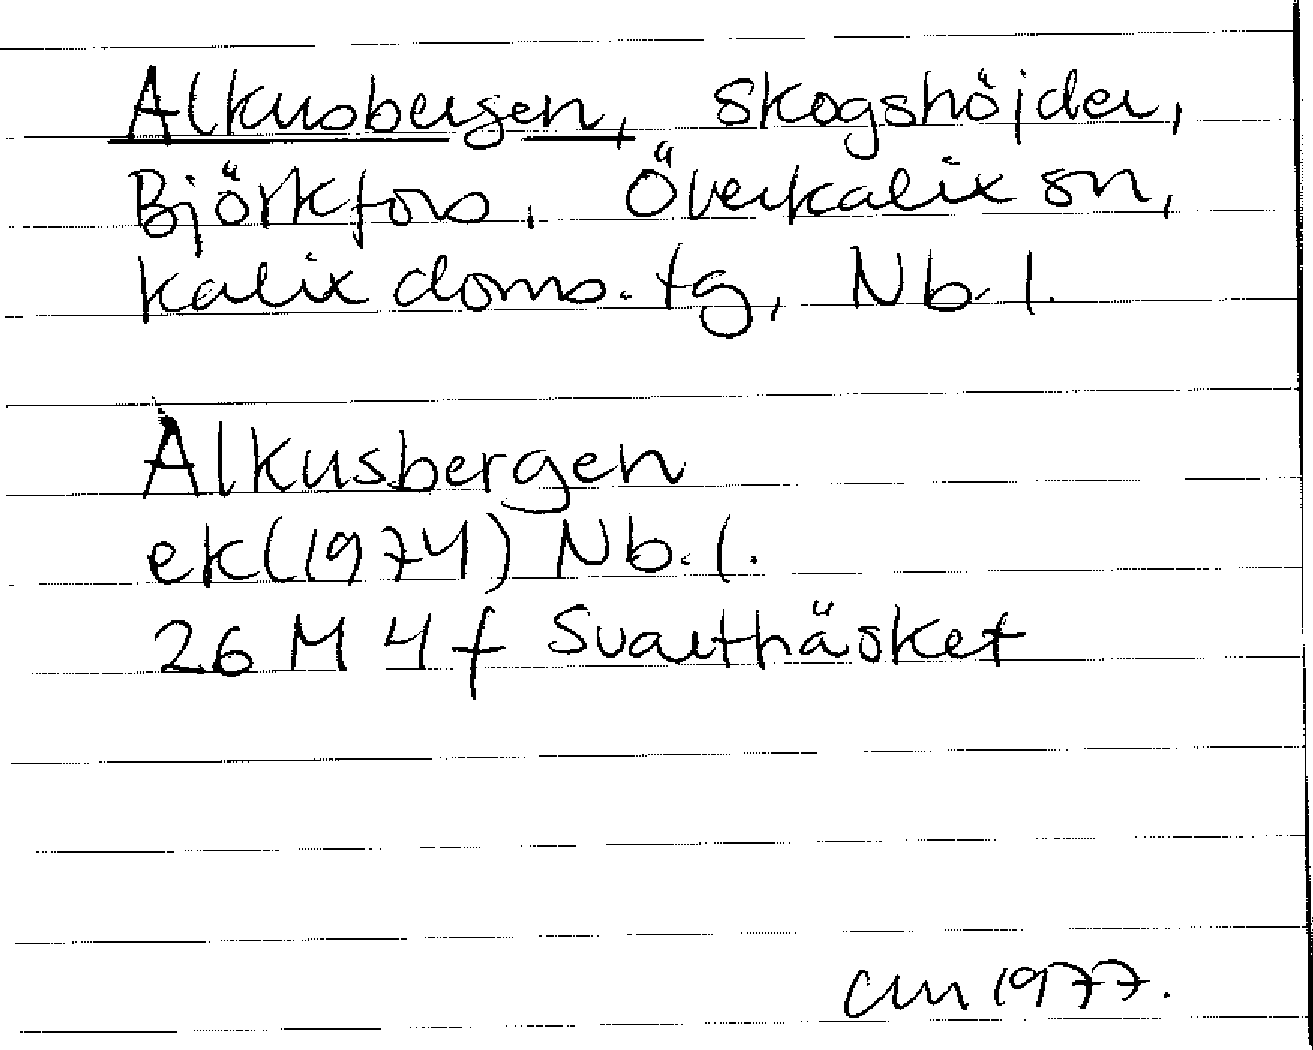 Alkusbergen, skogshöjder,
Björkfors, Överkalix sn,
Kalix doms. tg, Nb. l.
Alkusbergen
ek(1974) Nb. l.
26 M 4 f Svartträsket
1977.